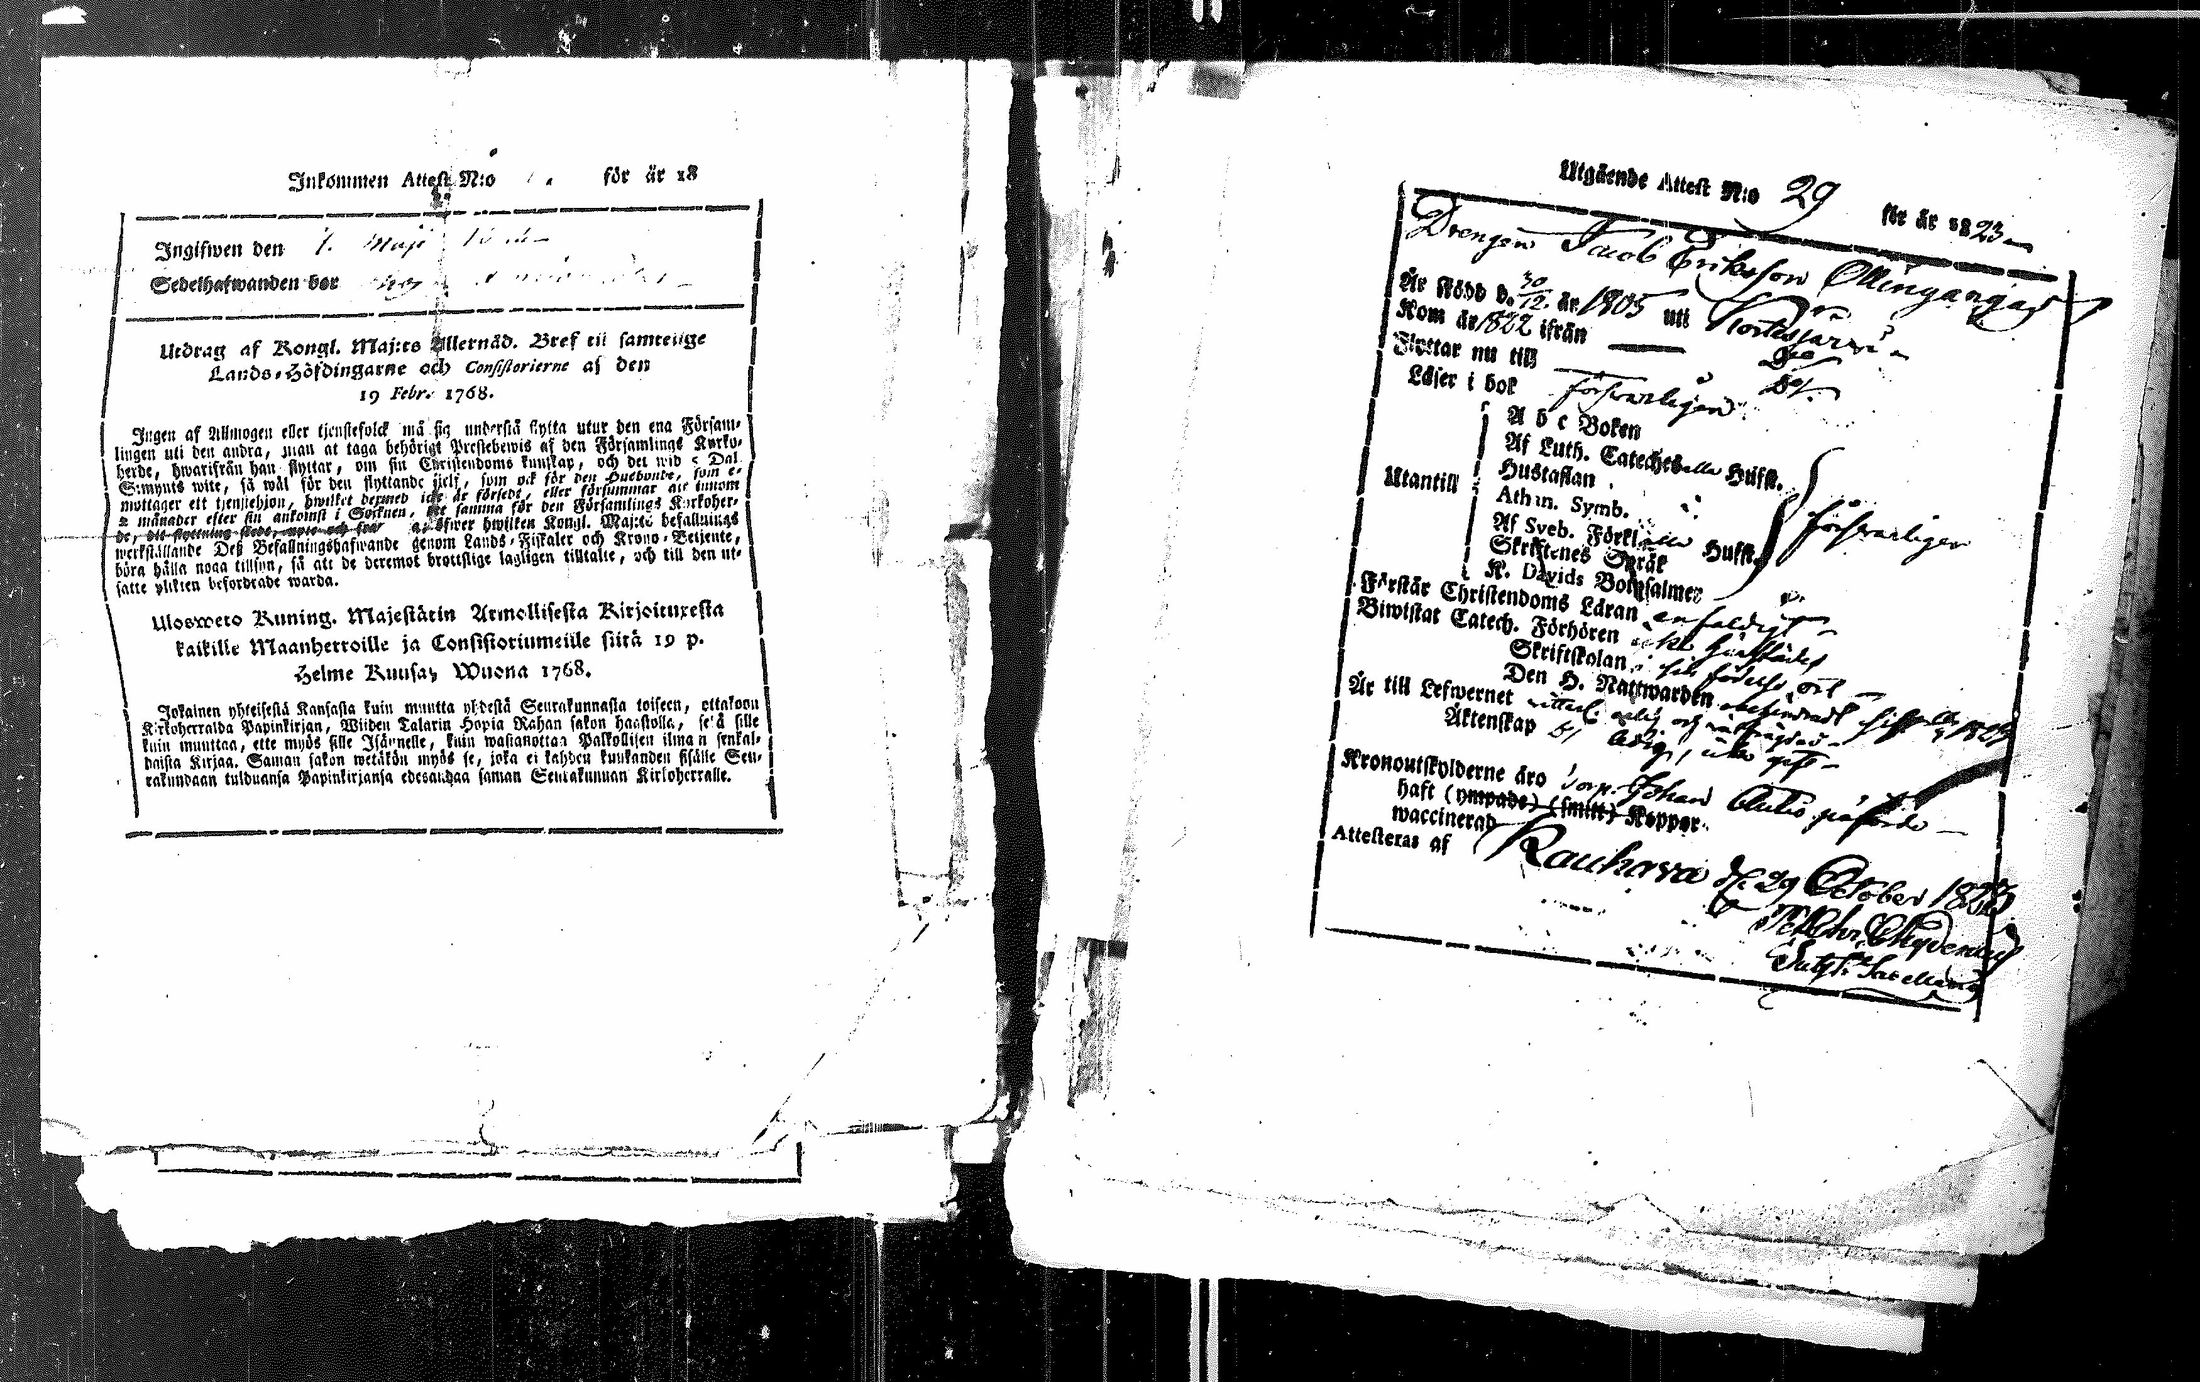 Inkommen Attest N:o för år 18
Ingifwen den 7. Maji
Sedelhafwanden bor
Utdrag af Kongl. Maj:ts Allernåd. Bref til samtelige
Lands-Höfdingarne och Consistorierne af den
19 Febr. 1768.
Ingen af Allmogen eller tjenstefolck må sig understå flytta utur den ena Försam-
lingen uti den andra, utan at taga behörigt Prestebewis af den Församlings Kyrko-
herde, hwarifrån han flyttar, om sin Christendoms kunskap, och det wid 5 Dal.
S:mynts wite, så wäl för den flyttande sjelf, som ock för den Husbonde, som e-
mottager ett tjenstehjon, hwilket dermed icke är försedt, eller försummar att innom
2 månader efter sin ankomst i Socknen, te samma för den Församlings Kyrkoher-
de, dit flyttning skedt, öfwer hwilken Kongl. Maj:ts befallnings
werkställande Deß Befallningshafwande genom Lands-Fiskaler och Krono-Betjente,
böra hålla noga tillsyn, så att de deremot brottslige lagligen tilltalte, och till den ut-
satte plikten befordrade warda.
Ulosweto Kuning. Majestätin Armollisesta Kirjoituxesta
kaikille Maanherroille ja Consistoriumeille siitä 19 p.
Helme Kuusa, Wuona 1768.
Jokainen yhteisestä Kansasta kuin muutta yhdestä Seurakunnasta toiseen, ottakoon
Kirkoherralda Papinkirjan, Wiiden Talarin Hopia Rahan sakon haastolla, sekä sille
kuin muuttaa, ette myös sille Isännelle, kuin wastanottaa Palkollisen ilman senkal-
daista Kirjaa. Saman sakon wetäkön myös se, joka ei kahden kuukauden sisälle Seu-
rakundaan tulduansa Papinkirjansa edesandaa saman Seurakunnan Kirkoherralle.
Utgående Attest N:o 29 för år 1823
Drengen Jacob Eriksson Ollingangas
Är född d. 30/12. år 1805 uti Kortesjärvi
Kom år 1822 ifrån — Do
Flyttar nu till Do.
Läser i bok försvarligen
A b c Boken
Af Luth. Cateches alla Hufst.
Hustaflan
Utantill Athan. Symb. försvarligen
Af Sveb. Förkl. alla Hufst.
Skriftenes Språk
K. Davids Botpsalmer
Förstår Christendoms Läran enfaldigt
Biwistat Catech. Förhören
Skriftskolan
Den H. Nattwarden obehindradt
Är till Lefwernet
Äktenskap ledig,
Kronoutskylderne äro Johan påförde
haft (ympade) (smitt) Koppor
waccinerad
Attesteras af Kauhava d. 29 October 1823